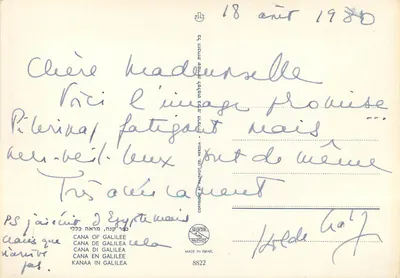 18 août 1980
Chère Mademoiselle
Voici l'image promise
Pèlerinage fatigant mais
merveilleux tout de même
Très amicalement
PS j'écrirai d'Egypte mais
crains que cela
n'arrive
pas.
CANA OF GALILEE
CANA DE GALILEA
CANA DI GALILEA
CANA EN GALILEE
KANAA IN GALILEA
MADE IN ISRAEL
8822